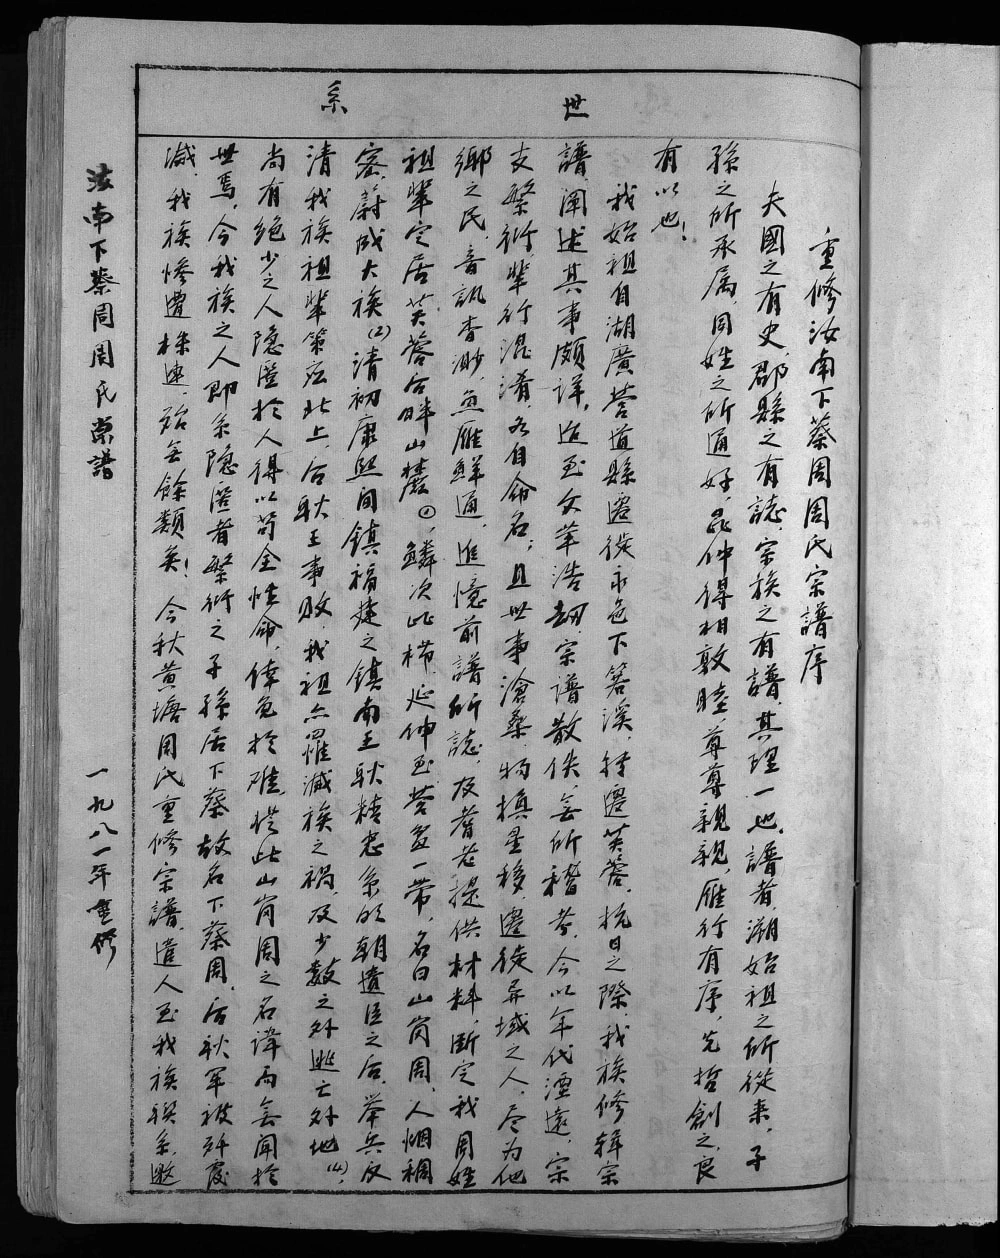 世系
重修汝南下蔡周周氏宗譜序
夫國之有史,郡縣之有誌,宗族之有譜,其理一也。譜者,溯始祖之所從来,子
孫之所承属,同姓之所通好,昆仲得相敦睦,尊尊親親,雁行有序,先哲創之,良
有以也!
我始祖自湖廣营道縣遷徙永邑下箬溪,转遷芙蓉,抗日之際,我族修輯宗
譜,阐述其事頗详,迨至文革浩劫,宗譜散佚,無所稽考,今以年代湮遠,宗
支繁衍,輩行混淆,各自命名;且世事滄桑,物换星移,遷徙异域之人,尽为他
鄉之民,音訊杳渺,魚雁鲜通,追憶前譜所誌,及耆老提供材料,断定我周姓
祖輩定居芙蓉后畔山麓(1),鳞次比栉,延伸至营盘一带,名曰山岗周,人烟稠
密,蔚成大族(2)清初康熙间镇福建之镇南王耿精忠系的朝遗臣之后,举兵反
清我族祖輩策应北上,后耿王事败,我祖亦罹滅族之祸,及少数之外逃亡外地(4),
尚有绝少之人隐匿於人得以苟全性命,倖免於难,従此山岗周之名諱而無闻於
世焉,今我族之人即系隐匿者繁衍之子孫居下蔡故名下蔡周,后耿軍被歼覆
滅,我族惨遭株連,殆無餘類矣!今秋黄塘周氏重修宗譜,遣人至我族联系,邀
汝南下蔡周周氏宗譜
一九八一年重修